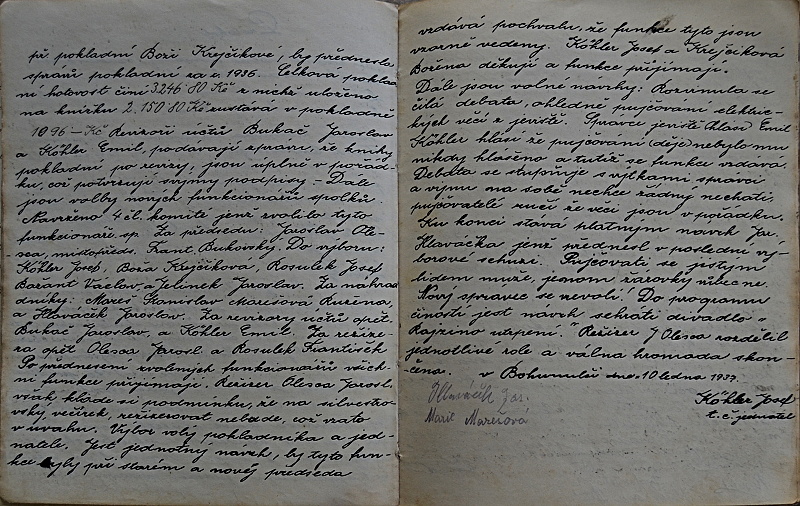 při pokladní Boži Krejčíkové, by přednesla
zprávu pokladní za r. 1936. Celková poklad
ní hotovost činí 3246˙80 Kč z nichž uloženo
na knížku 2.150˙80 Kč zustává v pokladně
1096 – Kč Revizoři účtů Bukač Jaroslav
a Köhler Emil, podávají zprávu, že knihy
pokladní po revizy, jsou úplně v pořád-
ku, což potvrzují svými podpisy. – Dále
jsou volby nových funkcionářů spolků.
Navrženo 4 čl. komité jenž zvolilo tyto
funkcionáře sp. Za předsedu: Jaroslav Ole-
sca, místopředs. Frant. Bukovský. Do výboru:
Köhler Josef, Boža Krejčíkova, Rosulek Josef
Bořant Václav, a Jelínek Jaroslav. Za náhrad
dníky: Mareš Stanislav Marešová Růžena,
a Hlaváček Jaroslav. Za revizory účtů opět
Bukač Jaroslav, a Köhler Emil. Za režize-
ra opět Olesca Jarosl. a Rosulek František
Po přednesení zvolených funkcionářů všich-
ni funkce přijímají. Režizer Olesca Jarosl.
však klade si podmínku, že na silvestro-
vský večírek, režizerovat nebude, což vzato
v úvahu. Výbor volý pokladníka a jed-
natele. Jest jednotný návrh, by tyto fun-
kce byly při starém a nový předseda
vzdává pochvalu, že funkce tyto jsou
vzorně vedeny. Köhler Josef a Krejčíková
Božena děkují a funkce přijímají.
Dále jsou volné návrhy: Rozvinula se
čilá debata, ohledně pujčování elektric-
kých věcí z jeviště. Správce jeviště (hlase) Emil
Köhler hlásí že pujčování (děje) nebylo mu
nikdy hlášeno a tutíž se funkce vzdává.
Debata se stupňuje s výtkami správci
a vynu na sobě nechce žádný nechati,
pujčovatelé ručí že věci jsou v pořádku.
Ku konci stává platným návrh Jar.
Hlaváčka jenž přednesl v poslední vý-
borové schuzi. Pujčovati se jistým
lidem muže, jenom žárovky vůbec ne.
Nový správec se nevolí. Do programu
činosti jest návrh sehráti divadlo „
Rajzíno utrpení." Režizer J Olesca rozdělil
jednotlivé role a válna hromada skon-
čena. v Bohumulči dne 10 ledna 1937.
Köhler Josef
t. č. jednatel
Hlaváček Jar.
Marie Marešová